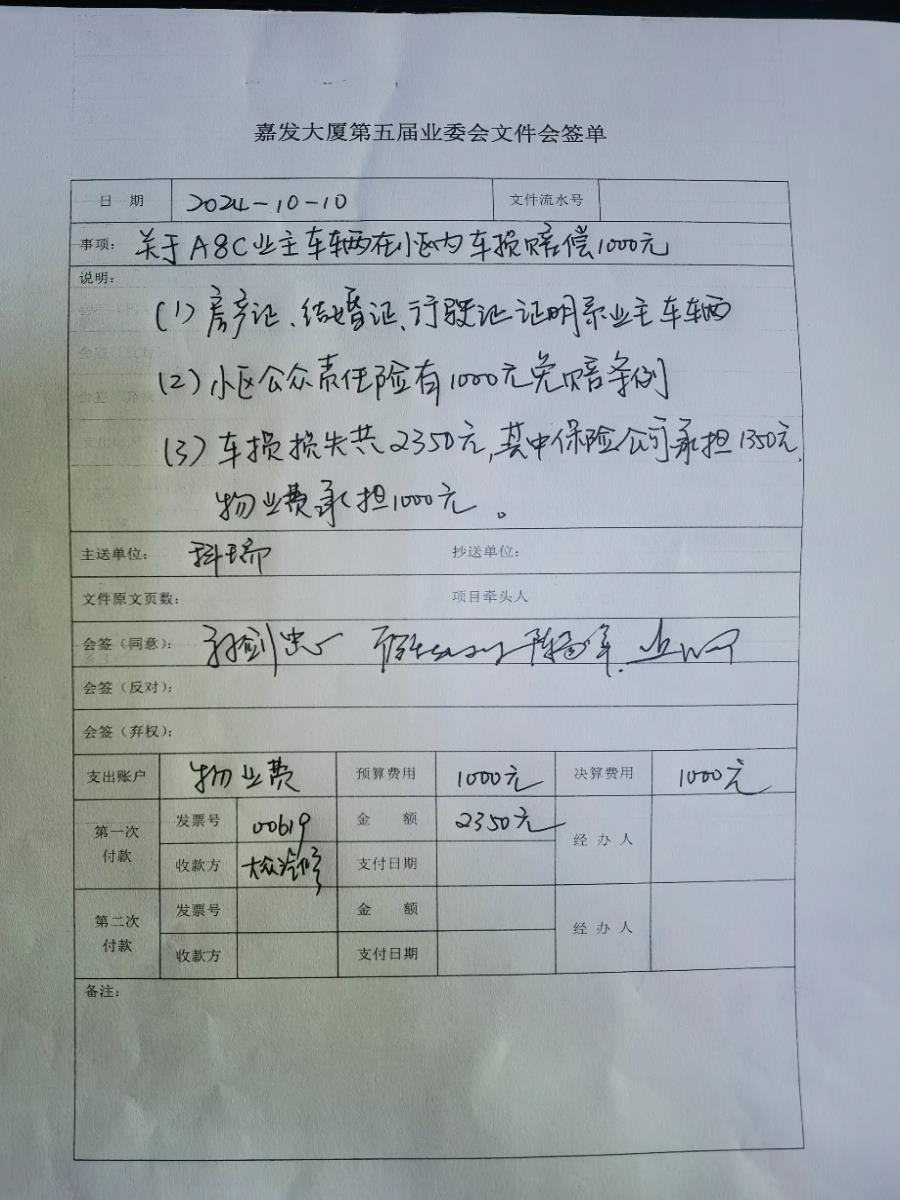 嘉发大厦第五届业委会文件会签单
日 期 2024-10-10 文件流水号
事项: 关于A8C业主车辆在小区内车损赔偿1000元
说明:
(1) 房产证、结婚证、行驶证证明系业主车辆
(2) 小区公众责任险有1000元免赔条例
(3) 车损损失共2350元,其中保险公司承担1350元,
物业费承担1000元。
主送单位: 科瑞 抄送单位:
文件原文页数: 项目牵头人
会签(同意):
会签(反对):
会签(弃权):
支出账户 物业费 预算费用 1000元 决算费用 1000元
第一次付款 发票号 00619 金 额 2350元 经 办 人
收款方 大众汽修 支付日期
第二次付款 发票号 金 额 经 办 人
收款方 支付日期
备注: